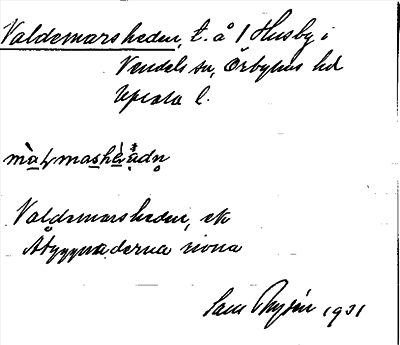 Valdemarsheden, t. å 1 Husby i
Vendels sn, Örbyhus hd
Upsala l.
Valdemarsheden, ek
Åbyggnaderna rivna
Sam Rysén 1931